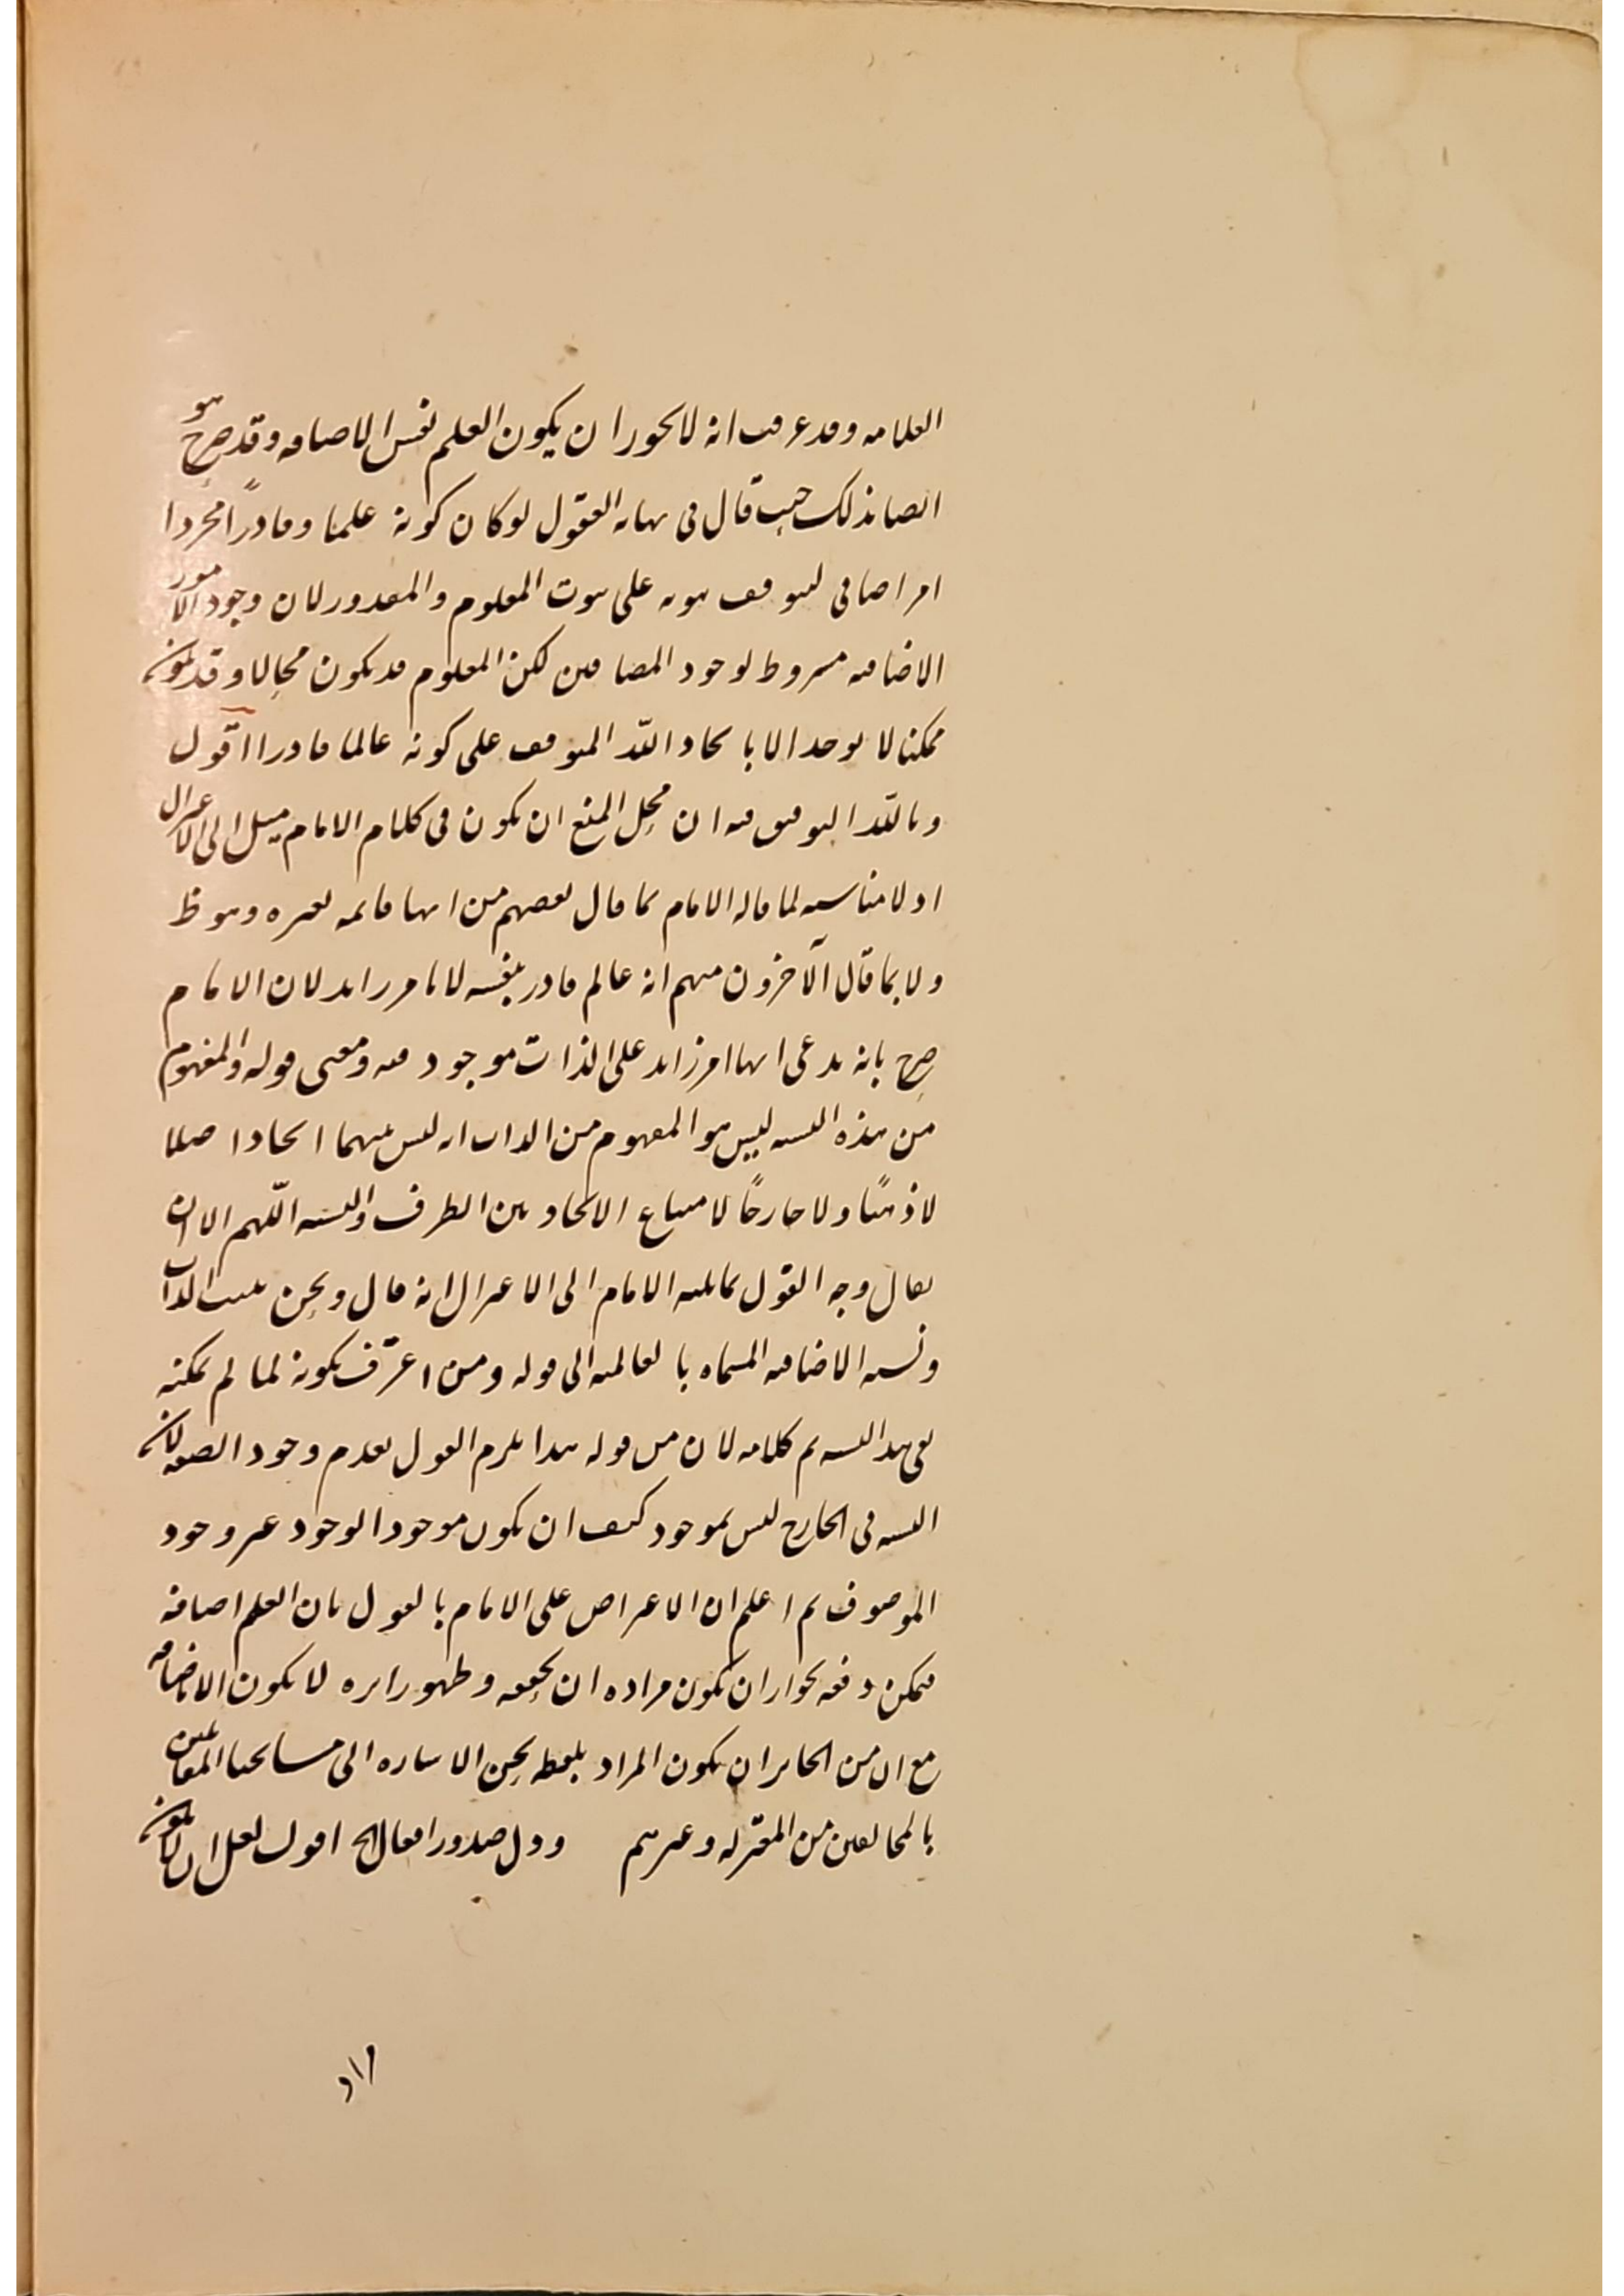 العلامه وقد عرفت انه لا يجوز ان يكون العلم نفس الاضافه وقد صرح هو
ايضا بذلك حيث قال في نهايه العقول لو كان كونه علما وقادرًا مجردا
امر اضافي لتوقف ثبوته على ثبوت المعلوم والمقدور لان وجود الامور
الاضافيه مشروط لوجود المضافين لكن المعلوم قد يكون محالا وقد يكون
ممكنا لا يوجد الا بايجاد الله المتوقف على كونه عالما قادرا اقول
وبالله التوفيق فيه ان محل المنع ان يكون في كلام الامام ميل الى الاعتزال
اذ لا مناسبه لما قاله الامام كما قال بعضهم من انها قائمه بغيره وهو ظ
ولا بما قال الآخرون منهم انه عالم قادر بنفسه لا بامر زايد لان الامام
صرح بانه يدعى انها امر زايد على الذات موجود فيه ومعنى قوله والمفهوم
من هذه النسبه ليس هو المفهوم من الذات انه ليس بينهما اتحاد اصلا
لا ذهنًا ولا خارجًا لامتناع الاتحاد بين الطرف والنسبه اللهم الا ان
يقال وجه القول بمايليه الامام الى الاعتزال انه قال ونحن نثبت الذات
ونسبه الاضافيه المسماه بالعالميه الى قوله ومن اعترف بكونه لما لم يمكنه
نفي هذا النسبه ثم كلامه لان من قوله هذا يلزم القول بعدم وجود الصفه لان
النسبه في الخارج ليس بموجود كيف ان يكون موجودا لوجود غير وجود
الموصوف ثم اعلم ان الاعتراض على الامام بالقول بان العلم اضافه
فيمكن دفعه بجواز ان يكون مراده ان تحققه وظهور اثره لا يكون الا باضافه
مع ان من الجائز ان يكون المراد بلفظ نحن الاشاره الى مشايخنا المقابلين
بالمخالفين من المعتزله وغيرهم وول صدور افعال الخ اقول لعل ان يكون